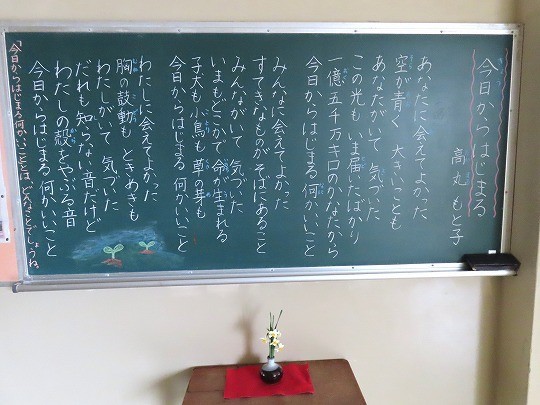 今日からはじまる
高丸 もと子
あなたに会えてよかった
空が青く 大きいことも
あなたがいて 気づいた
この光も いま届いたばかり
一億五千万キロのかなたから
今日からはじまる 何かいいこと
みんなに会えてよかった
すてきなものが そばにあること
みんながいて 気づいた
いまもどこかで 命が生まれる
子犬も 小鳥も 草の芽も
今日からはじまる 何かいいこと
わたしに会えてよかった
胸の鼓動も ときめきも
わたしがいて 気づいた
だれも知らない音だけど
わたしの殻をやぶる音
今日からはじまる 何かいいこと
「今日からはじまる何かいいこと」とは、どんなことでしょうね。